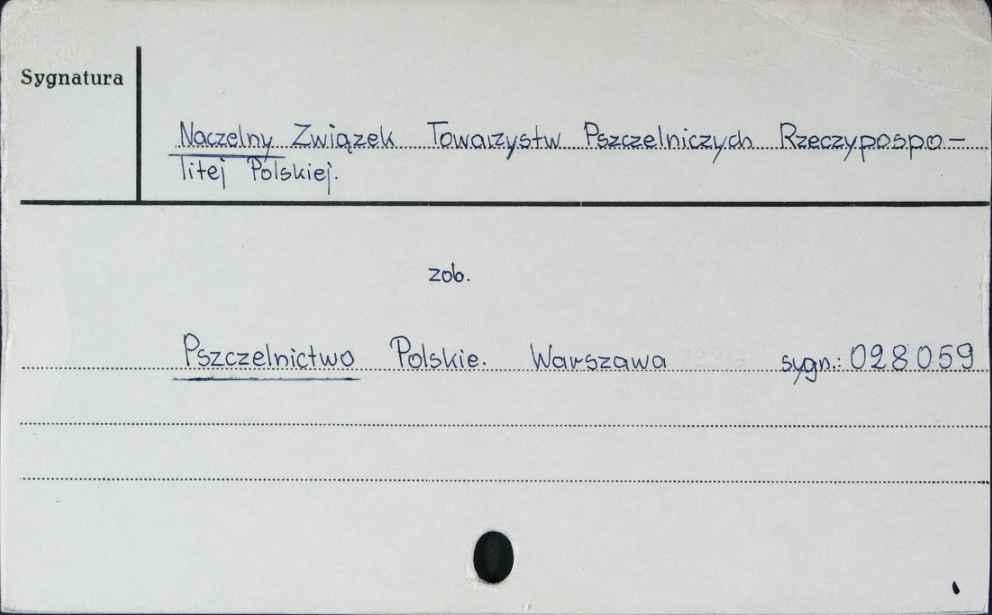 Sygnatura
Naczelny Związek Towarzystw Pszczelniczych Rzeczypospo-
litej Polskiej.
zob.
Pszczelnictwo Polskie. Warszawa sygn.: 028059